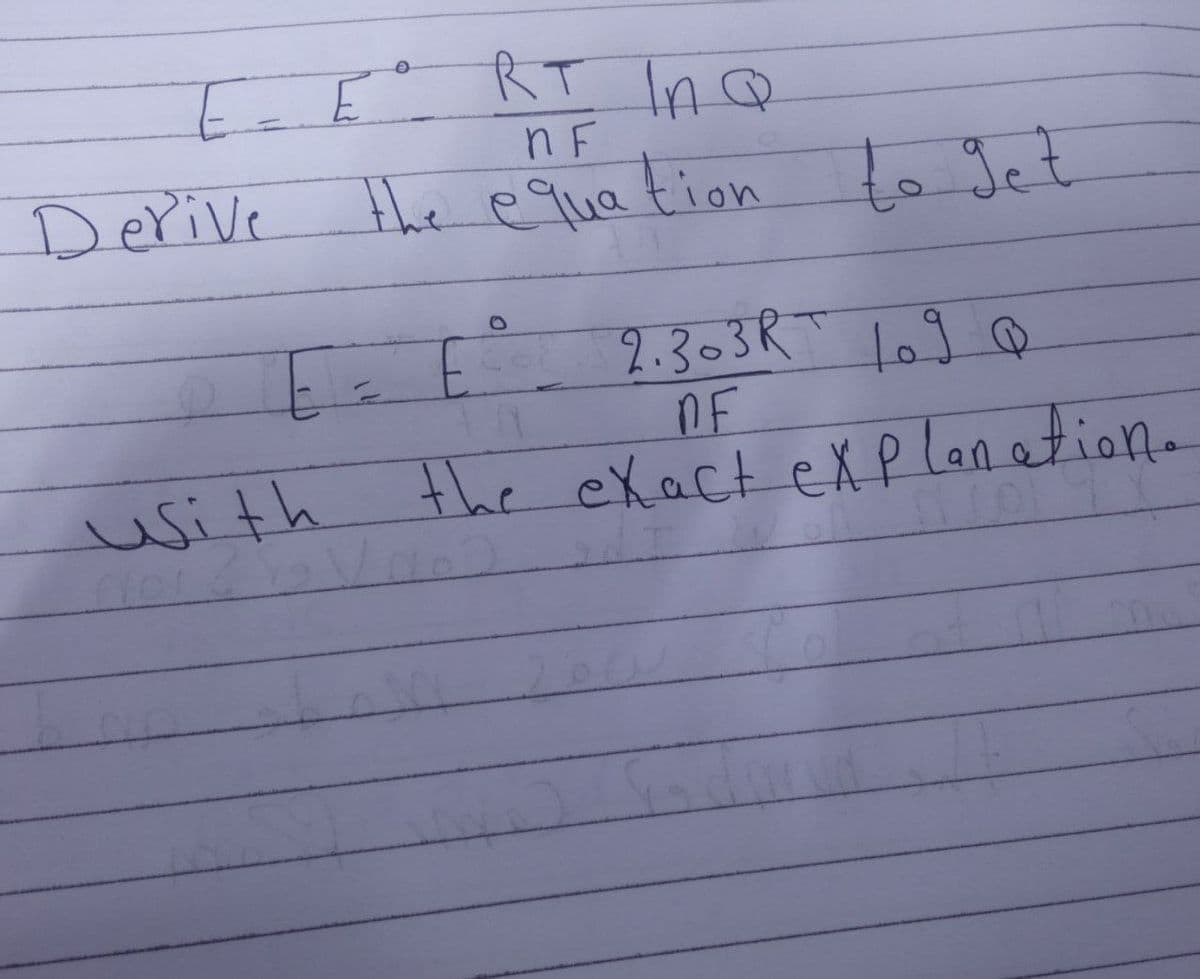 E = E° - RT/nF ln Q
Derive the equation to get
E = E° - 2.303RT/nF log Q
with the exact explanation.